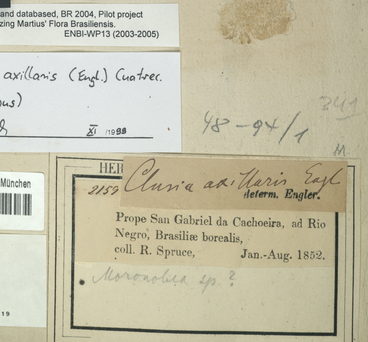 and databased, BR 2004, Pilot project
zing Martius' Flora Brasiliensis.
ENBI-WP13 (2003-2005)
axillaris (Engl.) Cuatrec.
XI /1998
341
48-94/1
M.
München
19
HER
2152
Clusia axillaris Engl
determ. Engler.
Prope San Gabriel da Cachoeira, ad Rio
Negro, Brasiliæ borealis,
coll. R. Spruce, Jan.-Aug. 1852.
Moronobea sp.?